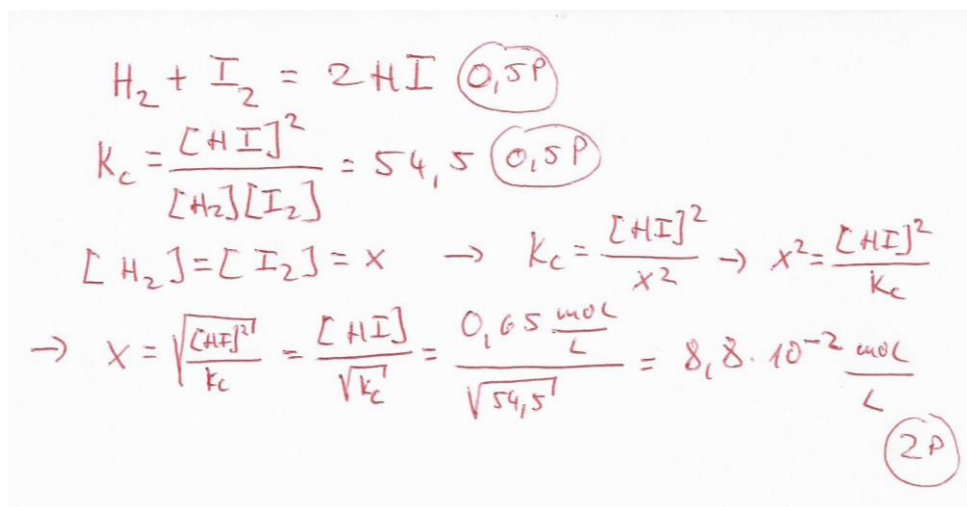 H₂ + I₂ = 2 HI (0,5P)
K_c = [HI]² / [H₂][I₂] = 54,5 (0,5P)
[H₂] = [I₂] = x → K_c = [HI]² / x² → x² = [HI]² / K_c
→ x = √([HI]² / K_c) = [HI] / √K_c = 0,65 mol/L / √54,5 = 8,8 · 10⁻² mol/L
(2P)